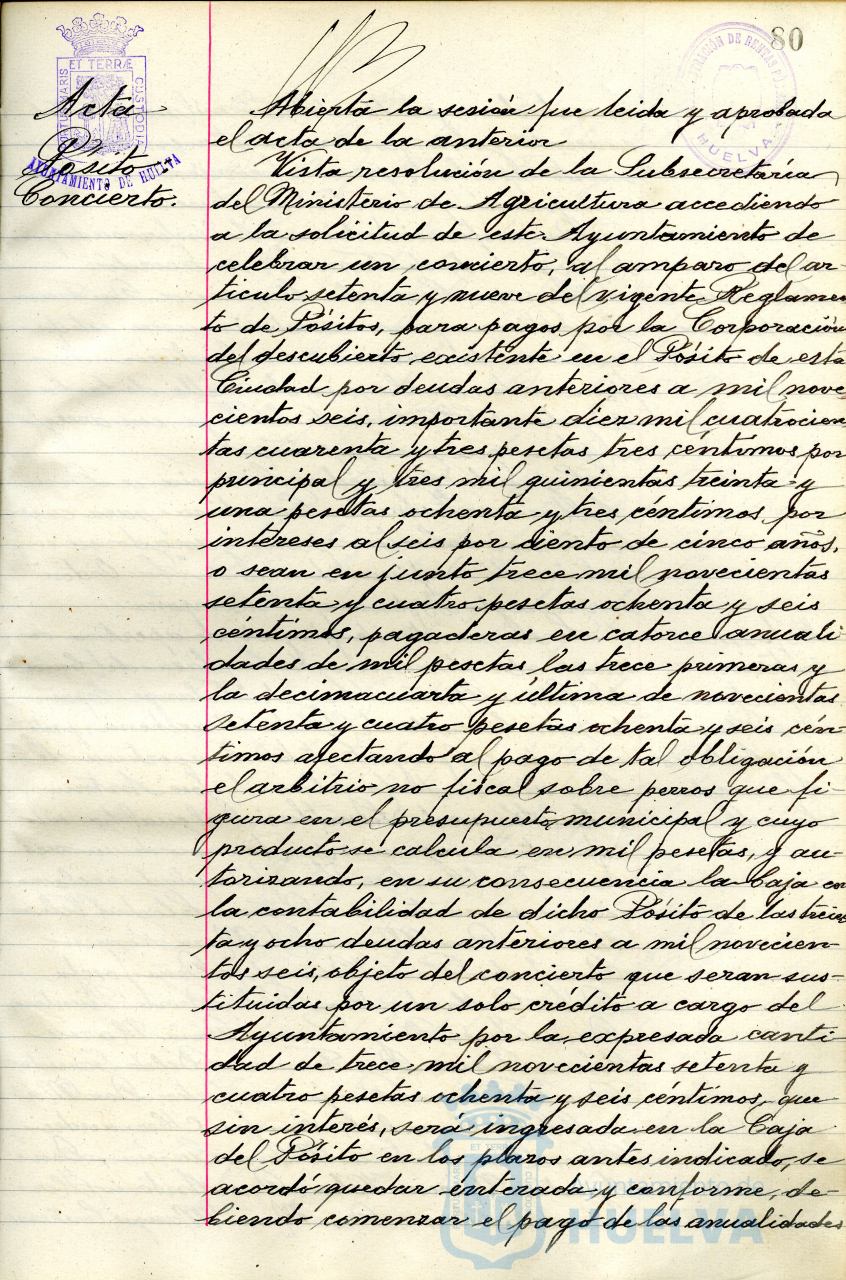 80
ET TERRÆ
CUSTODIA
HUELVA
AYUNTAMIENTO DE HUELVA
Acta
Pósito
Concierto.
Abierta la sesión fue leida y aprobada
el acta de la anterior
Vista resolución de la Subsecretaría
del Ministerio de Agricultura accediendo
a la solicitud de este Ayuntamiento de
celebrar un concierto, al amparo del ar-
ticulo setenta y nueve del vigente Reglamen
to de Pósitos, para pagos por la Corporación
del descubierto existente en el Pósito de esta
Ciudad por deudas anteriores a mil nove-
cientos seis, importante diez mil cuatrocien
tas cuarenta y tres pesetas tres céntimos por
principal y tres mil quinientas treinta y
una pesetas ochenta y tres céntimos por
intereses al seis por ciento de cinco años,
o sean en junto trece mil novecientas
setenta y cuatro pesetas ochenta y seis
céntimos, pagaderas en catorce anuali
dades de mil pesetas las trece primeras y
la decimacuarta y última de novecientas
setenta y cuatro pesetas ochenta y seis cén-
timos afectando al pago de tal obligación
el arbitrio no fiscal sobre perros que fi-
gura en el presupuesto municipal y cuyo
producto se calcula en mil pesetas, y au-
torizando, en su consecuencia la Caja en
la contabilidad de dicho Pósito de las trein
ta y ocho deudas anteriores a mil novecien-
tos seis, objeto del concierto que seran sus-
tituidas por un solo crédito a cargo del
Ayuntamiento por la expresada canti
dad de trece mil novecientas setenta y
cuatro pesetas ochenta y seis céntimos, que
sin interés, será ingresada en la Caja
del Pósito en los plazos antes indicado, se
acordó quedar enterada y conforme, de-
biendo comenzar el pago de las anualidades
Ayuntamiento de
HUELVA